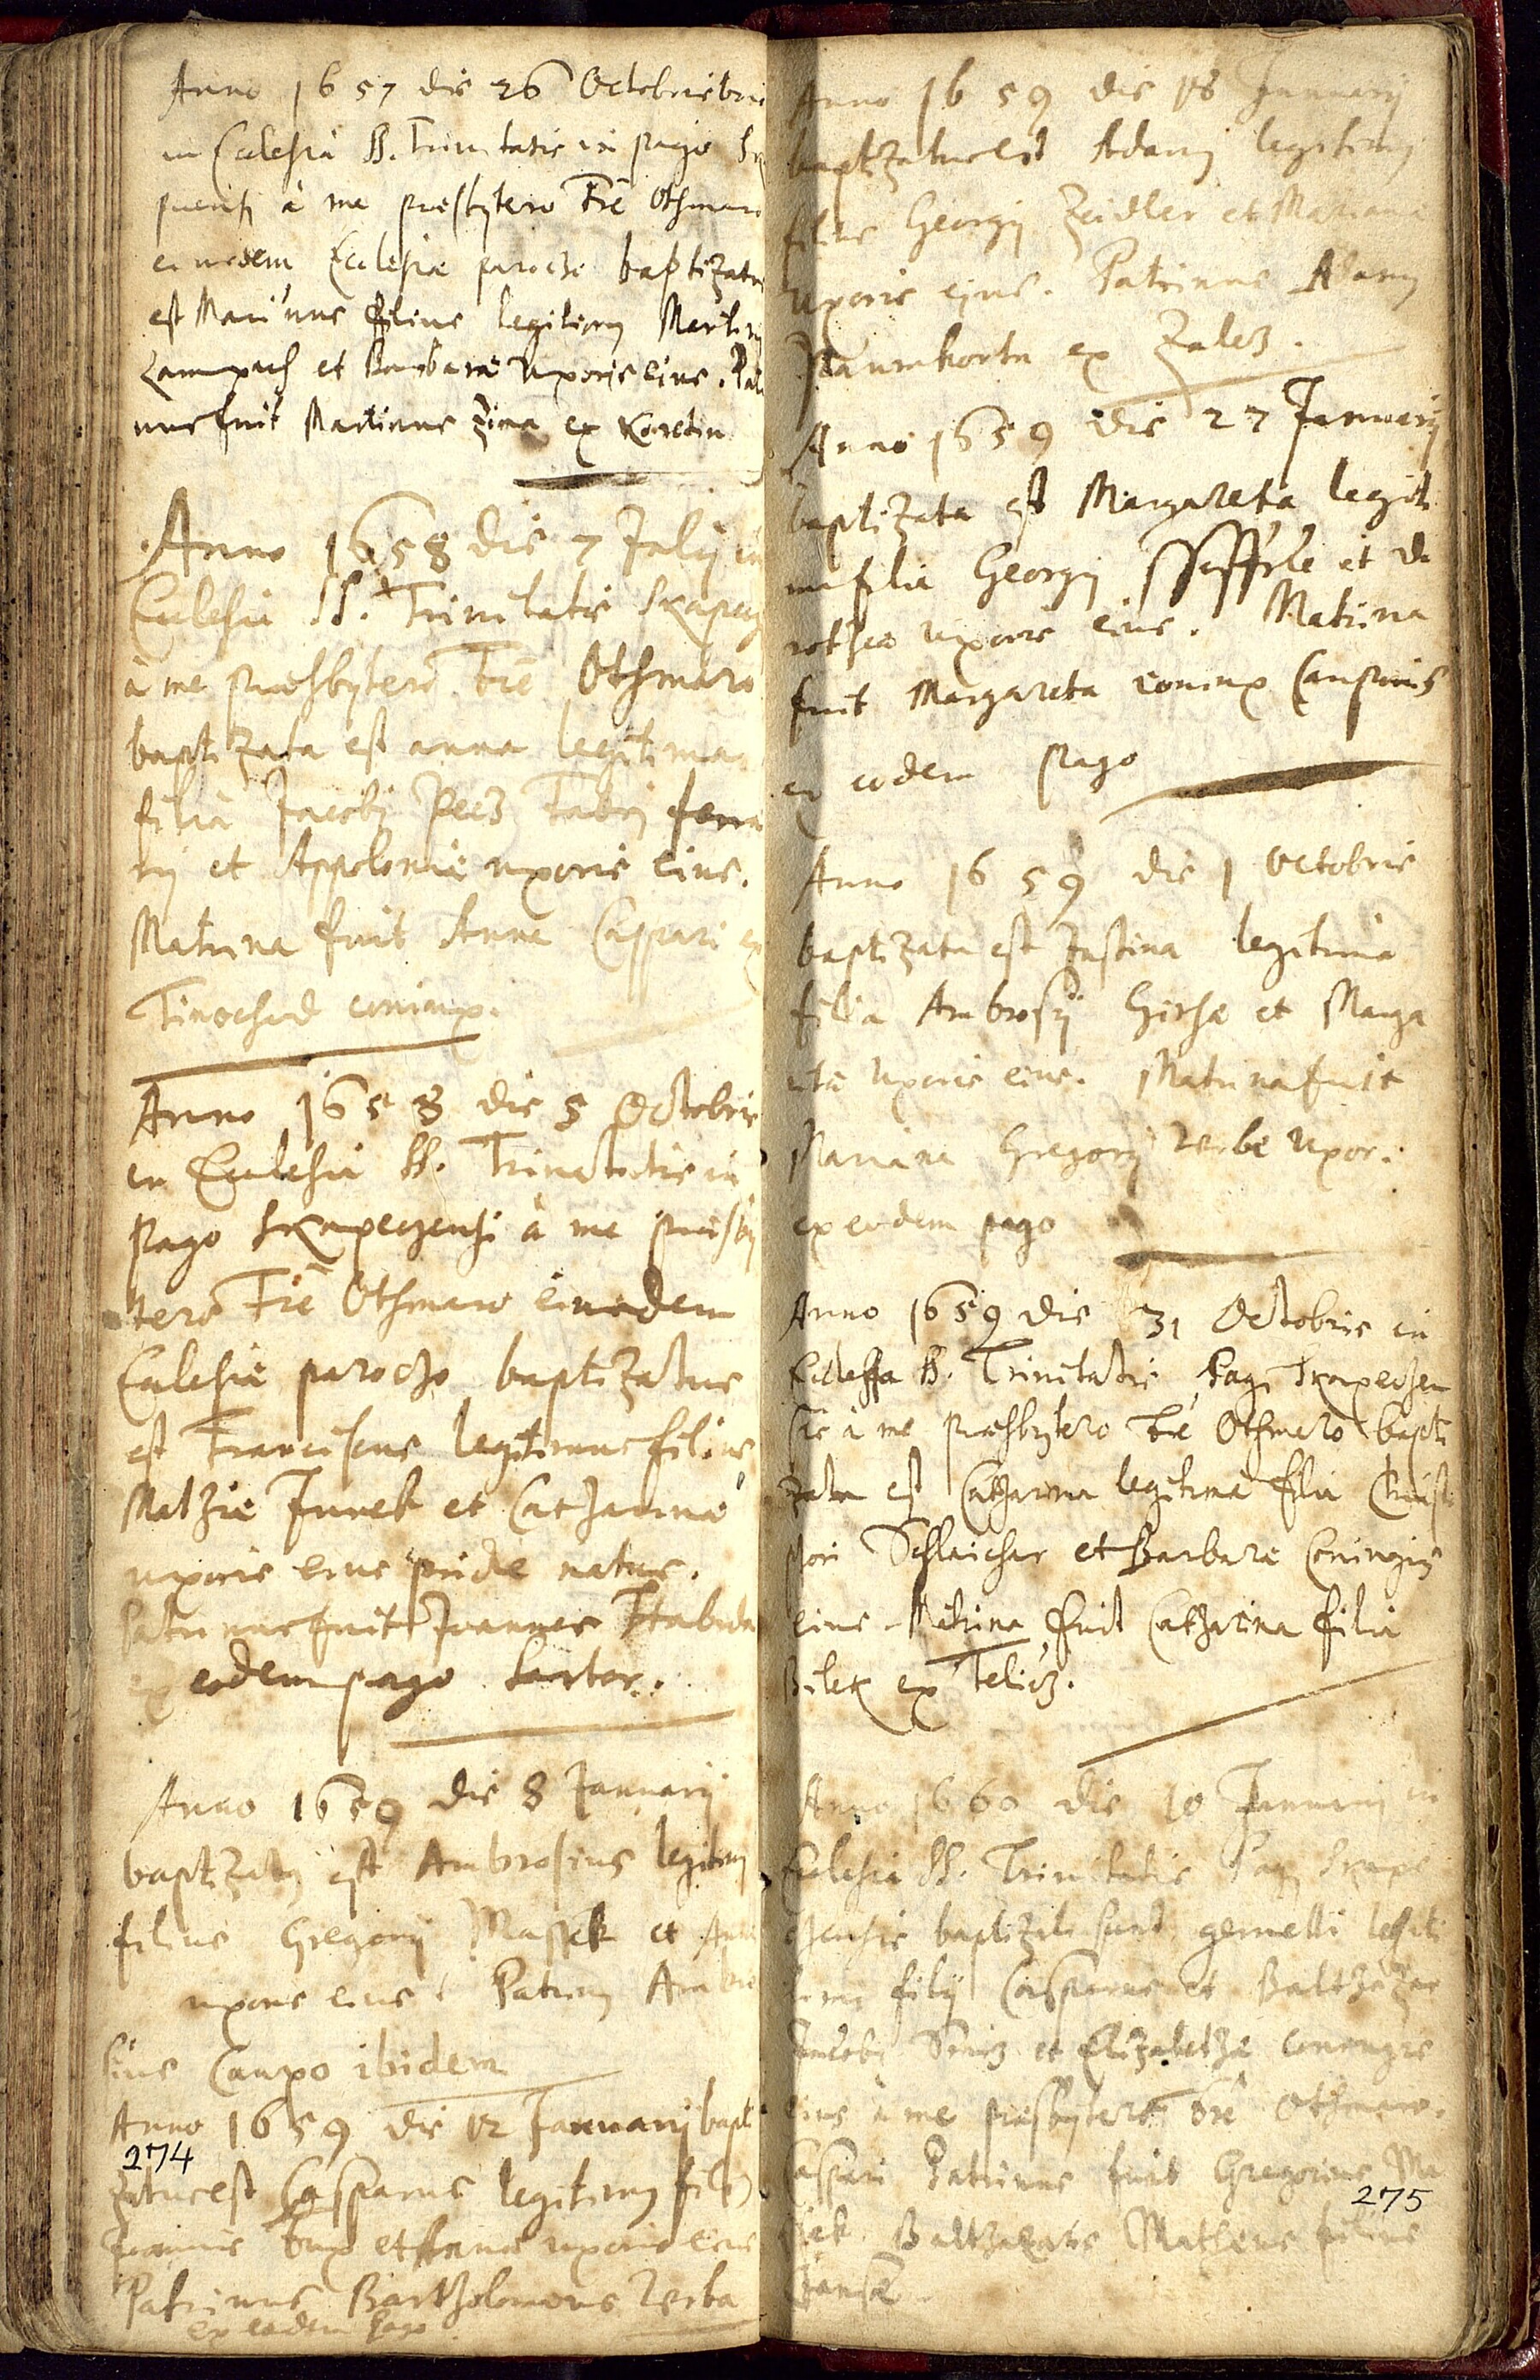 Anno 1657 die 26 Octobriebris
in Ecclesia SS. Trinitatis in pago
à me presbytero Fre Othmaro
eiusdem Ecclesiae parocho baptizatus
est filius legitimus Martini
et Barbarae uxoris eius. Patri
nus fuit Martinus Zima ex
Anno 1658 die 7 Julij in
Ecclesia SS. Trinitatis
à me presbytero Fre Othmaro
baptizata est anna legitima
filia Jacobi Pecz Fabri ferra
rij et Appoloniae uxoris eius.
Matrina fuit Anna Caspari ex
coniunx.
Anno 1658 die 5 Octobris
in Ecclesia SS. Trinitatis in
Pago Skapeczensi à me presby
tero Fre Othmaro eiusdem
Ecclesiae parocho baptizatus
est Franciscus legitimus filius
Mathiae Junek et Catharinae
uxoris eius pridie natus.
Patrinus fuit Joannes
ex eodem pago Sartor.
Anno 1659 die 8 Januarij
baptizatus est Ambrosius legitimus
filius Gregorij Massek et
uxoris eius. Patrinus Ambro
sius Caupo ibidem
Anno 1659 die 12 Januarij bapti
274
zatus est Casparus legitimus filius
et Annae uxoris eius
Patrinus Bartholomeus Zerba
ex eodem Pago
Anno 1659 die 18 Januarij
baptizatus est Adam legitimus
filius Georgij Zeidler et Marianae
uxoris eius. Patrinus Adam
ex Zalez.
Anno 1659 die 27 Januarij
baptizata est Margareta legiti
ma filia Georgij et Do
rotheae uxoris eius. Matrina
fuit Margareta coniunx Cauponis
ex eodem pago
Anno 1659 die 1 Octobris
baptizata est Justina legitima
filia Ambrosij et Marga
ritae uxoris eius. Matrina fuit
Mariana Gregorij Zerbe uxor.
ex eodem pago
Anno 1659 die 31 Octobris in
Ecclesia SS. Trinitatis Pagi Skapeczen
sis à me presbytero Fre Othmaro bapti
zata est Catharina legitima filia Christo
phori Schlaicher et Barbarae Coniugis
eius. Matrina fuit Catharina filia
Bilek ex Telicz.
Anno 1660 die 10 Januarij in
Ecclesia SS. Trinitatis Pagi Skape
czensis baptizati sunt gemelli legiti
filij Casparus et Balthazar
Jacobi et Elizabethae coniugis
eius à me presbytero Fre Othmaro.
Caspari Patrinus fuit Gregorius Ma
275
ssek. Balthazaris Matheus filius